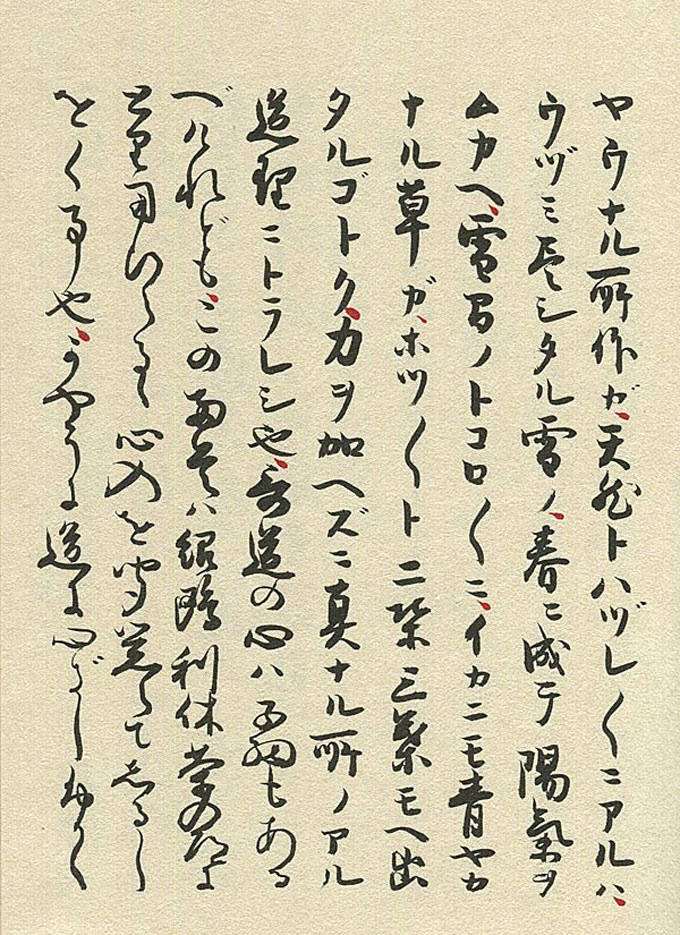 ヤウナル所作ガ、天然トハヅレ〱ニアルハ、
ウヅミ尽シタル雪ノ、春ニ成テ陽氣ヲ
ムカヘ、雪間ノトコロ〱ニ、イカニモ青ヤカ
ナル草ガ、ホツ〱ト二葉三葉モヘ出
タルゴトク、力ヲ加ヘズニ真ナル所ノアル
道理ニトラレシ也、哥道の心ハ子細もある
べけれども、この両首ハ紹鴎利休茶の道に
とり用ひらるゝ心入を聞覚えてしるし
をく事也、かやうに道に心ざしふかく